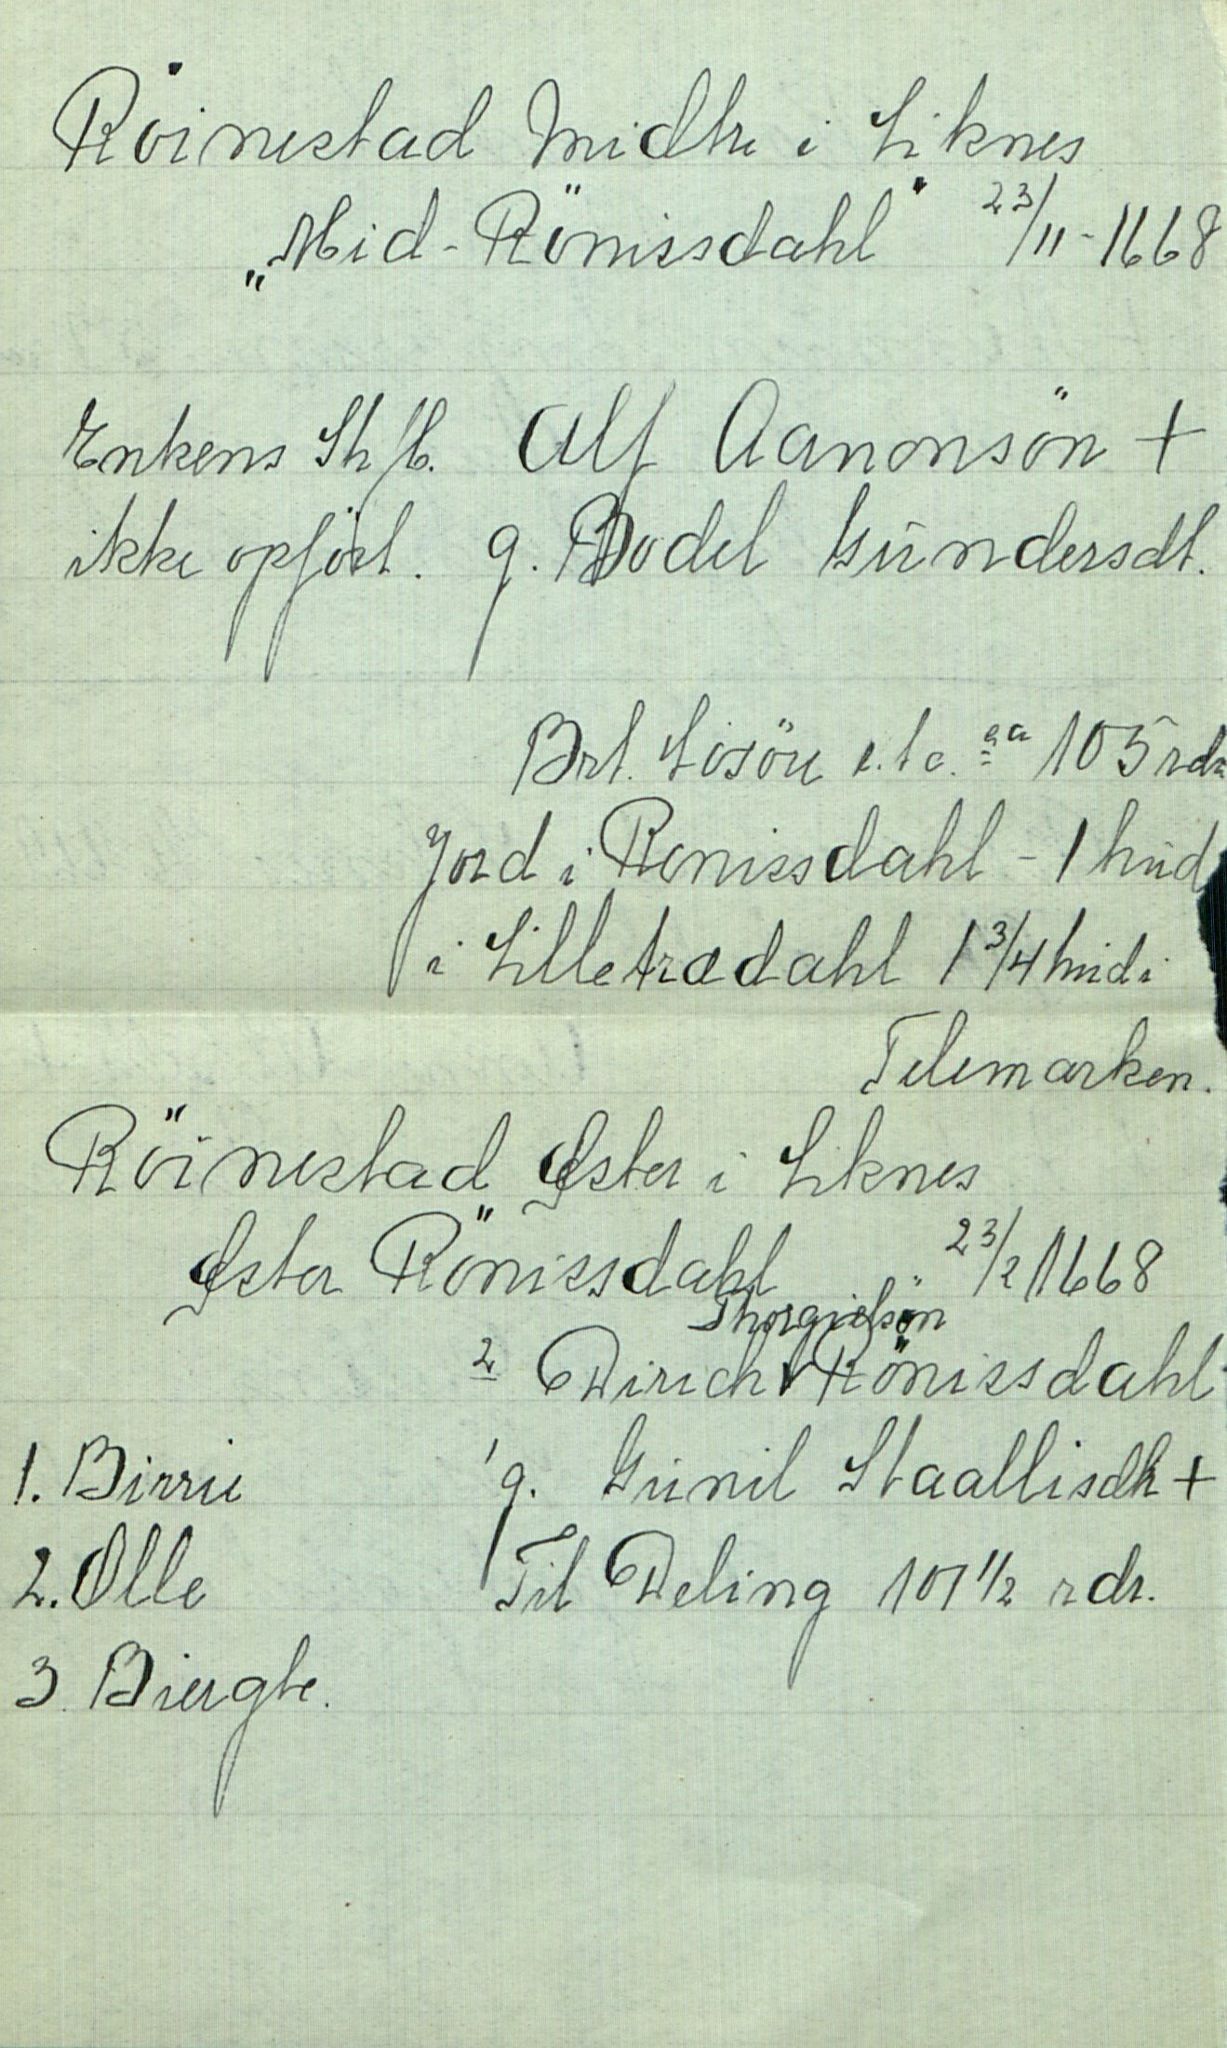 Röinestad Midtre i Liknes
„Mid-Rönissdahl" 23/11-1668
Enkens Alf Aanonsön +
ikke opført. g. Bodel Gŭndersdt.
Brt. Lösöre e.t.c. ca 105 rdr
Jord i Rönissdahl - 1 hŭd
i Lilletrædahl 1 3/4 hŭd i
Telemarken.
Röinestad Øster i Liknes
Øster Rönissdahl 23/2 1668
Thorgielsön
2 Dirich V Rönissdahl
1. Birrie 1 g. Gŭnil Staallisdtr +
2. Olle Til Deling 101 1/2 rdr.
3. Biergte.